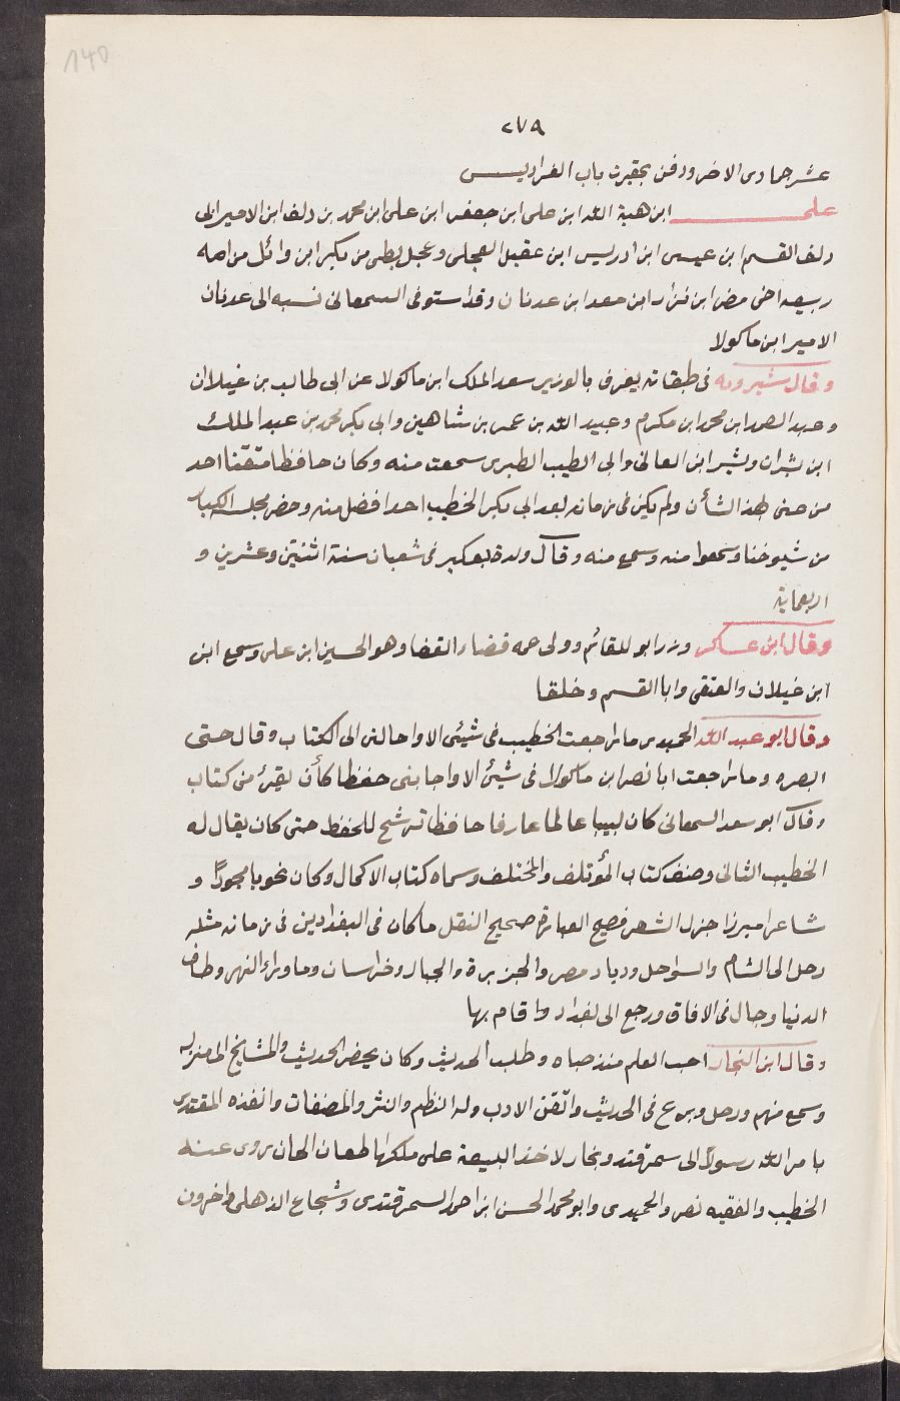 140
٢٧٩
عشر جمادى الاخر ودفن بمقبرت باب الفراديس
على ابن هبة الله ابن على ابن جعفر ابن على ابن محمد بن دلف ابن الامير ابى
دلف القسم ابن عيسى ابن ادريس ابن عقبل العجلى وعجل بطن من بكر ابن وائل من امه
ربيعه اخى مضر ابن نزار ابن معد ابن عدنان وقد استوفى السمعانى نسبه الى عدنان
الامير ابن ماكولا
وقال شيرويه فى طبقاته يعرف بالوزير سعد الملك ابن ماكولا عن ابى طالب بن غيلان
وعبد الصمد ابن محمد ابن مكرم وعبيد الله بن عمر بن شاهين وابى بكر محمد بن عبد الملك
ابن بشران وبشير ابن العانى وابى الطيب الطبرى سمعت منه وكان حافظا متقنا احد
من عنى بهذ الشأن ولم يكن فى زمانه بعد ابى بكر الخطيب احد افضل منه وحضر مجلسه الكبار
من شيوخنا وسمعوا منه وسمع منه وقال ولدة بعكبر فى شعبان سنة اثنتين وعشرين و
اربعماية
وقال ابن عساكر وزر ابو للقائم وولى عمه قضاء القضا وهو الحسين ابن على وسمع ابن
ابن غيلان والعتقى وابا القسم وخلقا
وقال ابو عبد الله الحميدى ما راجعت الخطيب فى شيئى الا واحالنى الى الكتاب وقال حتى
ابصره وما راجعت ابا نصر ابن ماكولا فى شيئ الا واجابنى حفظا كأن يقرئ من كتاب
وقال ابو سعد السمعانى كان لبيبا عالما عارفا حافظا ترشح للحفظ حتى كان يقال له
الخطيب الثانى وصنف كتاب المؤتلف والمختلف وسماه كتاب الاكمال وكان نحويا مجودًا و
شاعرا مبرزا جزل الشعر فصيح العبارة صحيح النقل ما كان فى البغداديين فى زمانه مثله
رحل الى الشام والسواحل وديار مصر والجزيرة والجبال وخراسان وما وراء النهر وطاف
الدنيا وجال فى الافاق ورجع الى بغداد واقام بها
وقال ابن النجار احب العلم منذ صباه وطلب الحديث وكان يحضر الحديث والمشايخ الى منزله
وسمع منهم ورحل وبرع فى الحديث واتّقن الادب وله النظم والنثر والمصنفات وانفذه المقتدى
بامر الله رسولًا الى سمرقند وبخار لاخذ البيعة على ملكها طمعان الحان يروى عنه
الخطيب والفقيه نصر والحميدى وابو محمد الحسن ابن احمد السمرقندى وشجاع الذهلى واخرون